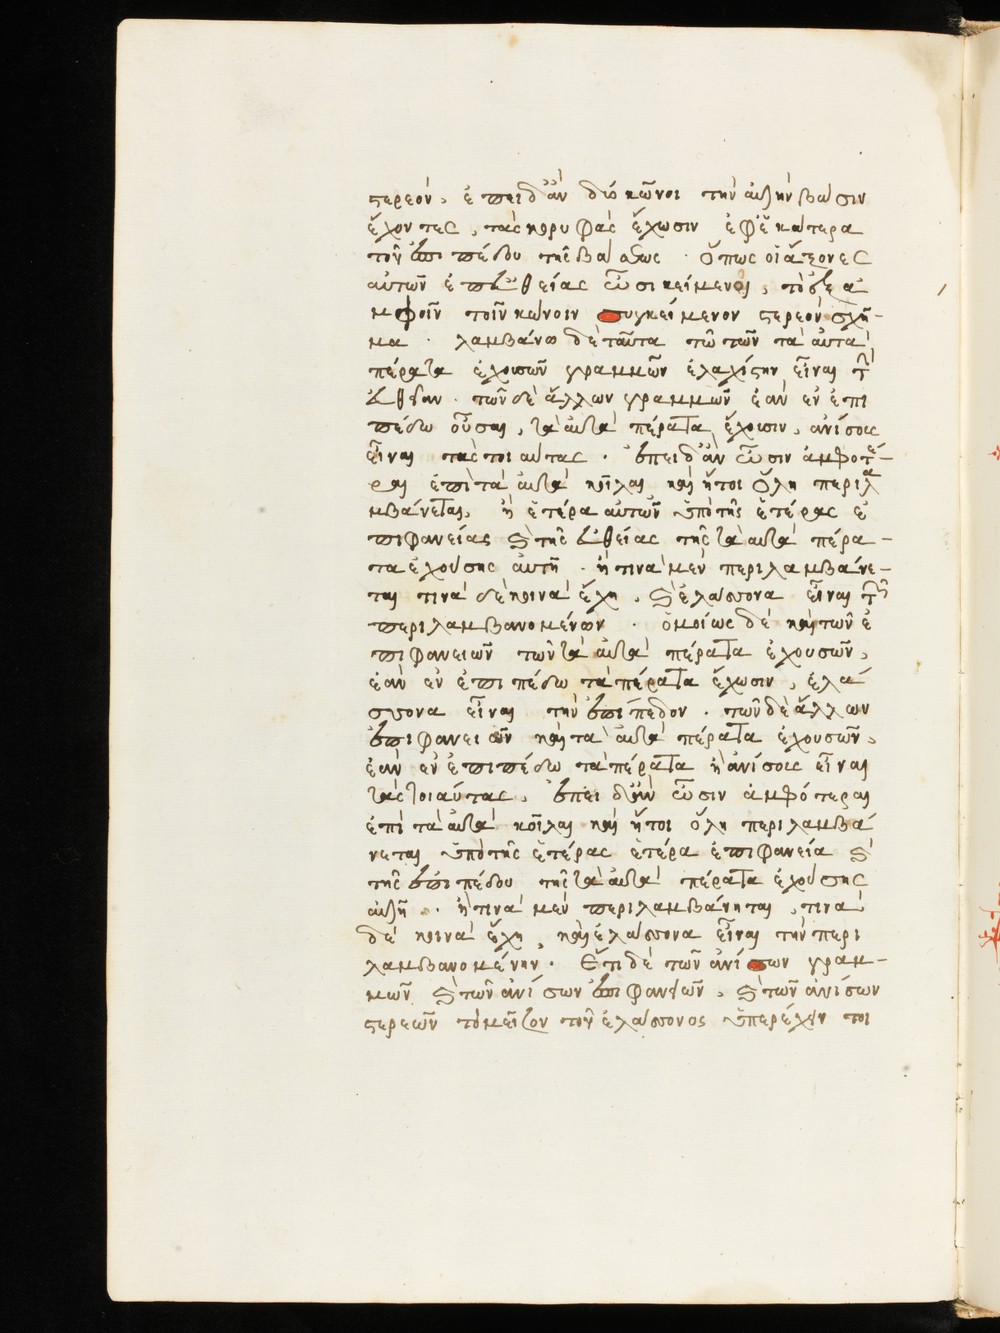 στερεόν, ἐπειδὰν δύο κῶνοι τὴν αὐτὴν βάσιν
ἔχοντες, τὰς κορυφὰς ἔχωσιν ἐφ' ἑκάτερα
τοῦ ἐπιπέδου τῆς βάσεως · ὅπως οἱ ἄξονες
αὐτῶν ἐπ' εὐθείας ὦσι κείμενοι, τὸ ἐξ ἀ
μφοῖν τοῖν κώνοιν συγκείμενον στερεὸν σχῆ-
μα · λαμβάνω δὲ ταῦτα τῶν τὰ αὐτὰ
πέρατα ἐχουσῶν γραμμῶν ἐλαχίστην εἶναι τὴν
εὐθεῖαν · τῶν δὲ ἄλλων γραμμῶν ἐὰν ἐν ἐπι
πέδω οὖσαι, τὰ αὐτὰ πέρατα ἔχωσιν, ἀνίσους
εἶναι τὰς τοιαύτας · ἐπειδὰν ὦσιν ἀμφότε-
ραι ἐπὶ τὰ αὐτὰ κοῖλαι καὶ ἤτοι ὅλη περιλα
μβάνεται, ἡ ἑτέρα αὐτῶν ὑπὸ τῆς ἑτέρας ἐ
πιφανείας καὶ τῆς εὐθείας τῆς τὰ αὐτὰ πέρα-
τα ἐχούσης αὐτῆ · ἢ τινὰ μὲν περιλαμβάνε-
ται τινὰ δὲ κοινὰ ἔχη, καὶ ἐλάσσονα εἶναι τὴν
περιλαμβανομένων · ὁμοίως δὲ καὶ τῶν ἐ
πιφανειῶν τῶν τὰ αὐτὰ πέρατα ἐχουσῶν,
ἐὰν ἐν ἐπιπέδω τὰ πέρατα ἔχωσιν, ἐλά
σσονα εἶναι τὴν ἐπίπεδον · τῶν δὲ ἄλλων
ἐπιφανειῶν καὶ τὰ αὐτὰ πέρατα ἐχουσῶν,
ἐὰν ἐν ἐπιπέδω τὰ πέρατα ἢ ἀνίσους εἶναι
τὰς τοιαύτας, ἐπειδὰν ὦσιν ἀμφότεραι
ἐπὶ τὰ αὐτὰ κοῖλαι καὶ ἤτοι ὅλη περιλαμβά
νεται ὑπὸ τῆς ἑτέρας ἑτέρα ἐπιφανεία καὶ
τῆς ἐπιπέδου τῆς τὰ αὐτὰ πέρατα ἐχούσης
αὐτῆ · ἢ τινὰ μὲν περιλαμβάνηται, τινὰ
δὲ κοινὰ ἔχη, καὶ ἐλάσσονα εἶναι τὴν περι
λαμβανομένην · Ἔτι δὲ τῶν ἀνίσων γραμ-
μῶν καὶ τῶν ἀνίσων ἐπιφανειῶν, καὶ τῶν ἀνίσων
στερεῶν τὸ μεῖζον τοῦ ἐλάσσονος ὑπερέχειν τοι